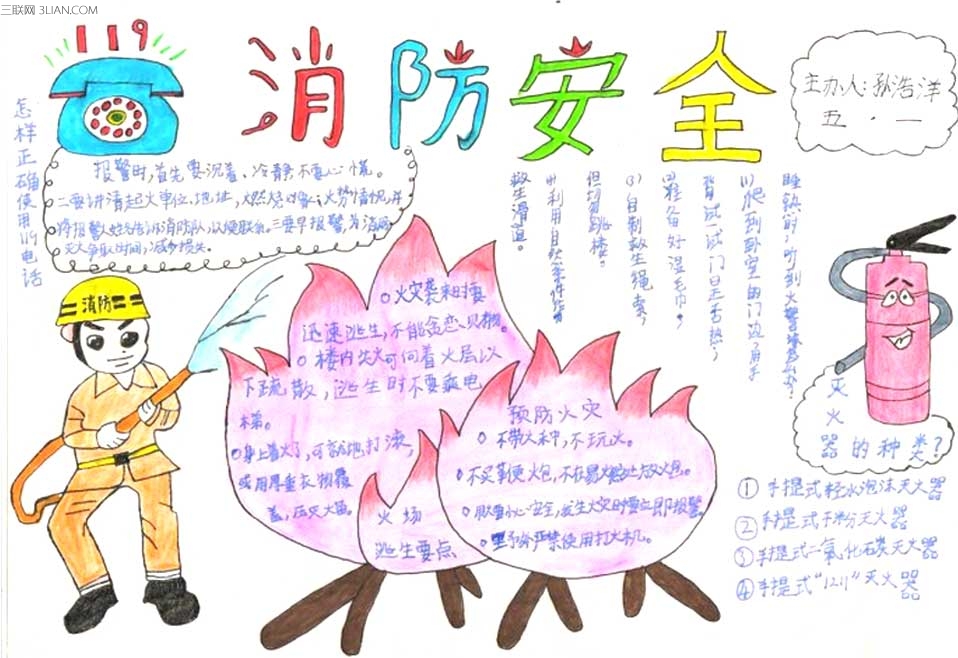 三联网 3LIAN.COM
119
消防安全
主办人:孙浩洋
五.一
怎样正确使用119电话
报警时,首先要沉着、冷静不要心慌。
二要讲清起火单位、地址,燃烧对象、火势情况,并
将报警人姓名告诉消防队,以便联系。三要早报警,为消防
灭火争取时间,减少损失。
睡熟时,听到火警
(1)爬到卧室的门边,用手
背试一试门是否热;
(2)准备好湿毛巾;
(3)自制救生绳索,
但切勿跳楼。
(4)利用自然条件
救生滑道。
消防
火灾袭来时要
迅速逃生,不能贪恋财物。
楼内失火可向着火层以
下疏散,逃生时不要乘电
梯。
身上着火了,可就地打滚,
或用厚重衣物覆
盖,压灭火苗。
火场
逃生要点
预防火灾
不带火种,不玩火。
不买
火炮,不在易燃处放火炮。
安全,发生火灾时要立即报警
野外严禁使用打火机。
灭火器的种类?
①手提式轻水泡沫灭火器
②手提式干粉灭火器
③手提式二氧化碳灭火器
④手提式“1211”灭火器